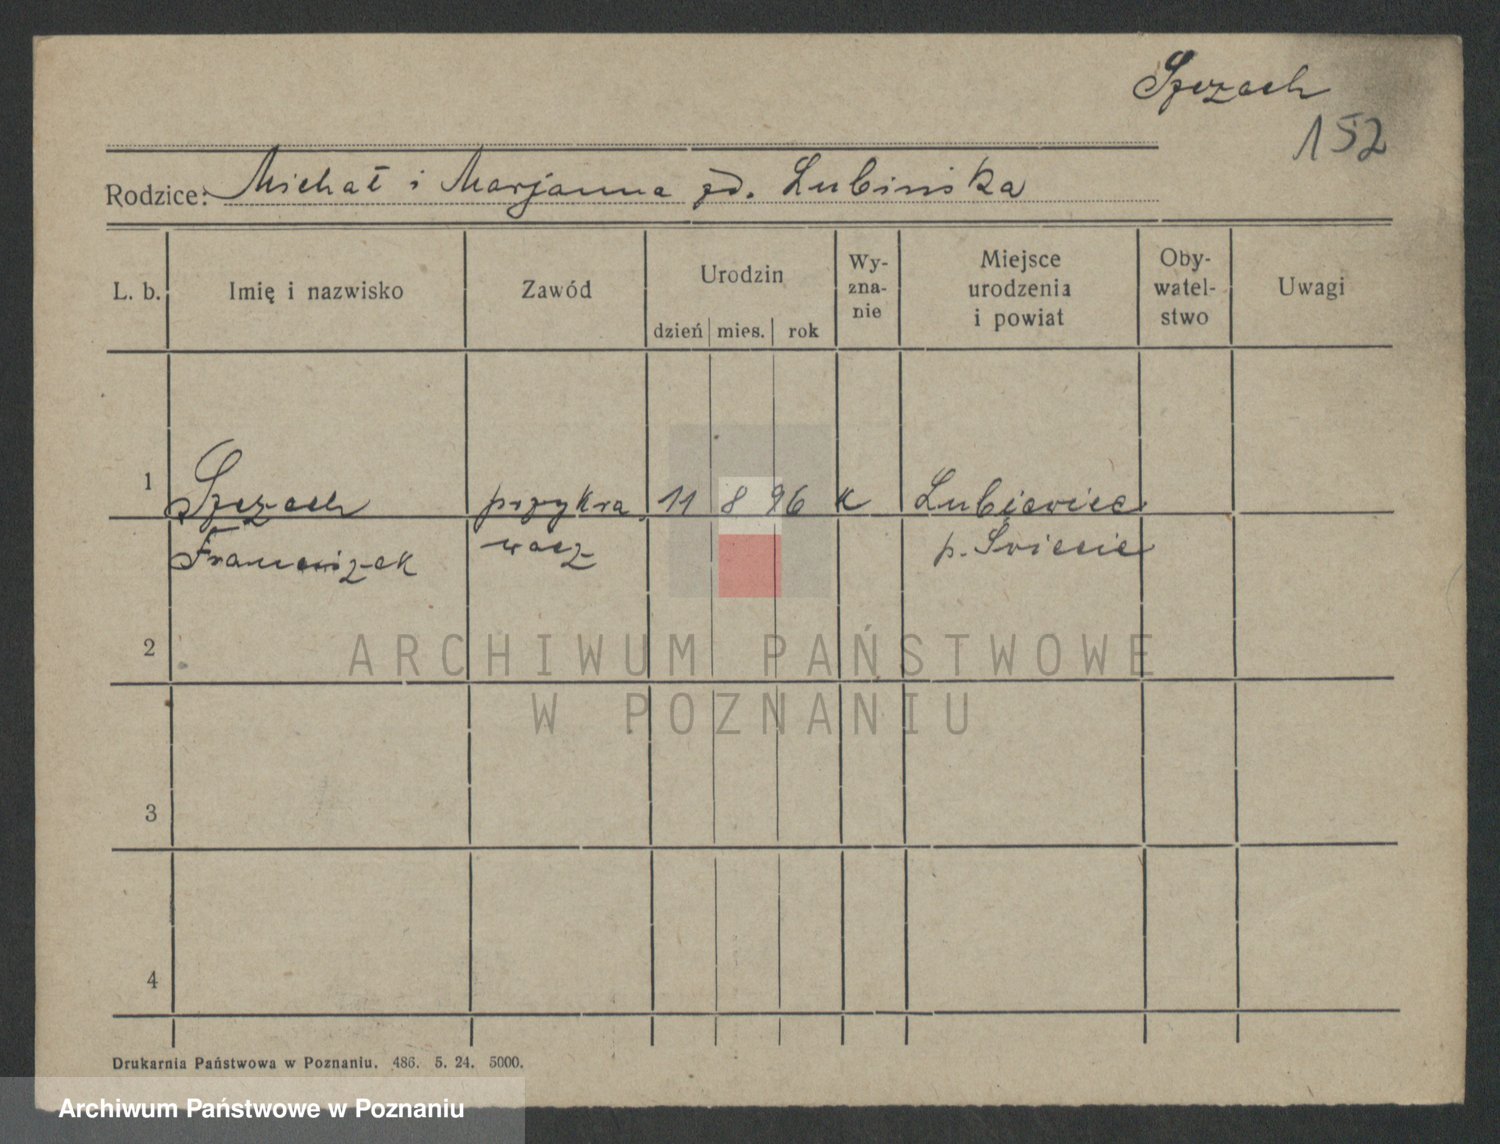 Szczach
152
Rodzice: Michał i Marjanna zd. Lubińska
L. b.
Imię i nazwisko
Zawód
Urodzin
dzień mies. rok
Wy-
zna-
nie
Miejsce
urodzenia
i powiat
Oby-
watel-
stwo
Uwagi
1
Szczach
Franciszek
przykra
wacz
11 8 96 k
Lubiewiec
p. Świecie
2
3
4
ARCHIWUM PAŃSTWOWE
W POZNANIU
Drukarnia Państwowa w Poznaniu. 486. 5. 24. 5000.
Archiwum Państwowe w Poznaniu